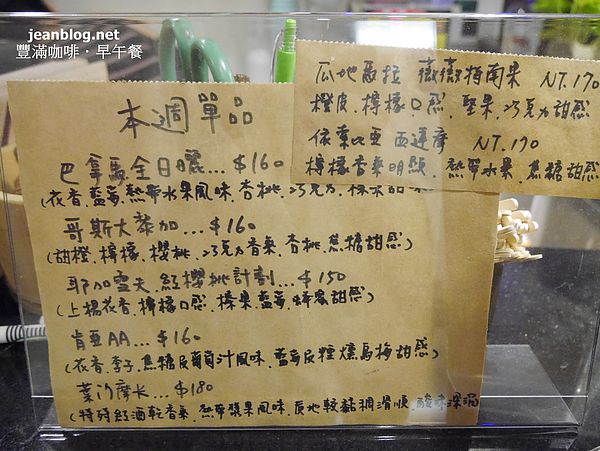 jeanblog.net
豐滿咖啡‧早午餐
本週單品
巴拿馬全日曬...$160
(花香.藍莓.熱帶水果風味.杏桃.巧克力.榛果甜感
哥斯大黎加...$160
(甜橙.檸檬.櫻桃.巧克力香氣.杏桃.焦糖甜感)
耶加雪夫.紅櫻桃計劃...$150
(上揚花香.檸檬口感.榛果.藍莓.蜂蜜甜感)
肯亞AA...$160
(花香.李子.焦糖皮葡萄汁風味.藍莓皮.煙燻烏梅甜感)
葉門摩卡...$180
(特殊紅酒乾香氣.熱帶漿果風味.質地較黏稠滑順.酸味深沉
瓜地馬拉 薇薇特南果 NT.170
橙皮.檸檬口感.堅果.巧克力甜感
依索比亞 西達摩 NT.170
檸檬香氣明顯.熱帶水果.焦糖甜感